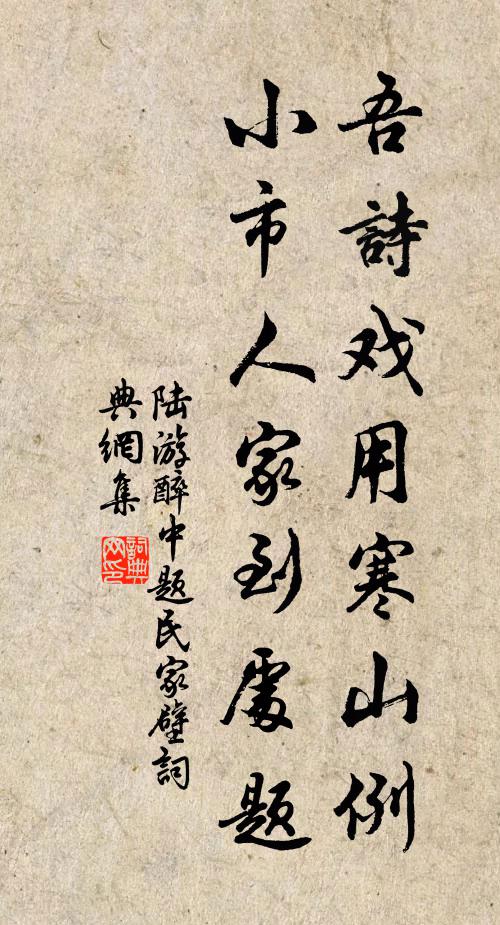 吾詩戏用寒山例
小市人家到處题
陆游醉中题民家壁词
典網集
詞典网印